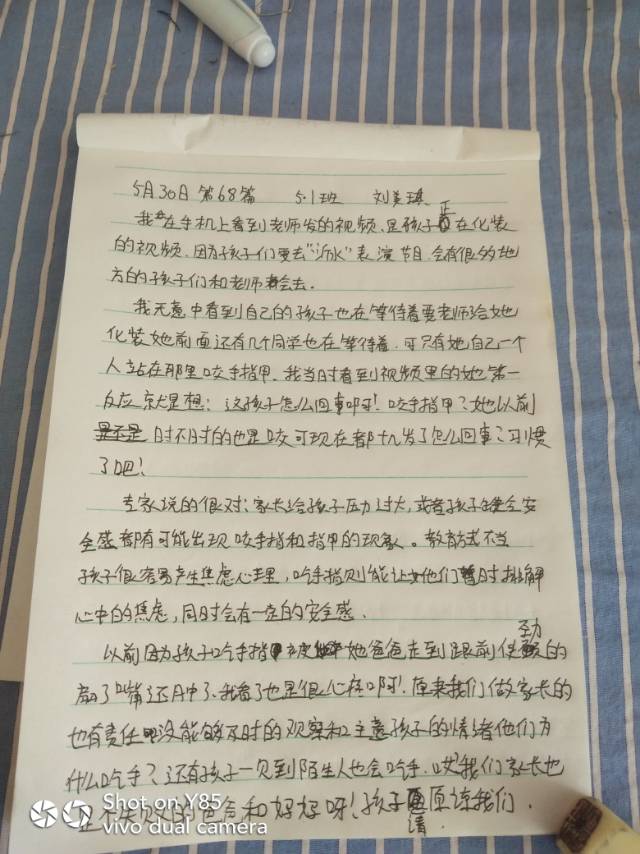 5月30日 第68篇 5.1班 刘美琪
我在手机上看到老师发的视频,是孩子正在化装
的视频,因为孩子们要去"沂水"表演节目,会有很多地
方的孩子们和老师会去.
我无意中看到自己的孩子也在等待着要老师给她
化装她前面还有几个同学也在等待着,可只有她自己一个
人站在那里咬手指甲,我当时看到视频里的她第一
反应就是想:这孩子怎么回事啊!咬手指甲?她以前
时不时的也是咬可现在都十几岁了怎么回事?习惯
了吧!
专家说的很对:家长给孩子压力过大,或者孩子缺乏安
全感都有可能出现咬手指和指甲的现象。教育方式不当
孩子很容易产生焦虑心理,吃手指则能让她们暂时排解
心中的焦虑,同时会有一定的安全感.
以前因为孩子吃手指她爸爸走到跟前使劲的
扇了嘴还肿了、我看了也是很心疼啊!原来我们做家长的
也有责任没能够及时的观察和注意孩子的情绪他们为
什么吃手?还有孩子一见到陌生人也会吃手.哎!我们家长也
好好呀!孩子请原谅我们.
Shot on Y85
vivo dual camera